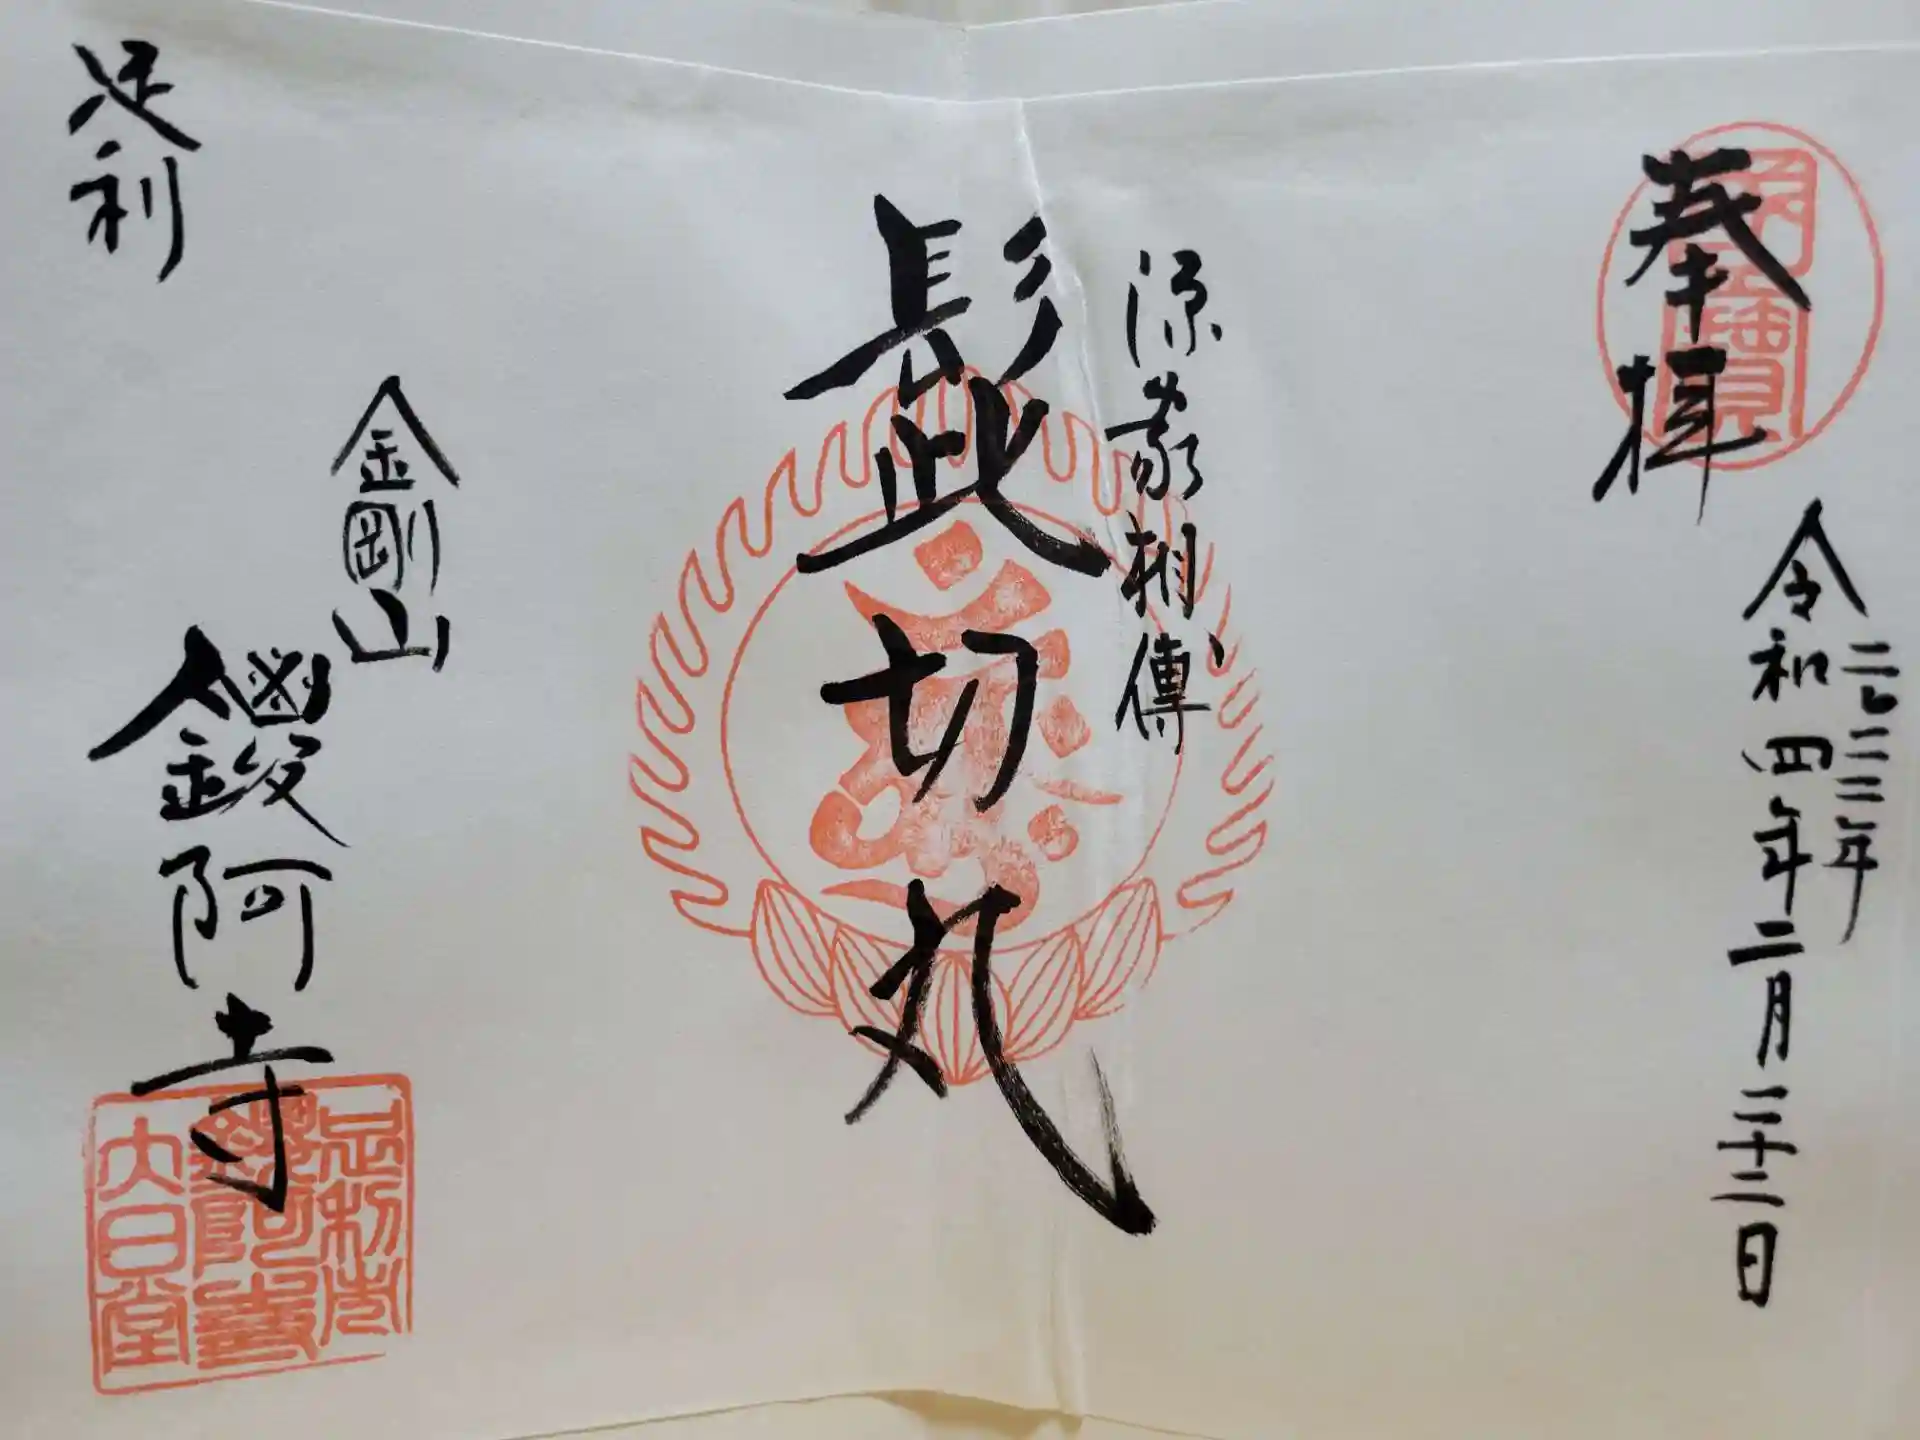 奉拝
二〇二二年
令和四年二月二十二日
源家相傳
髭切丸
金剛山
鑁阿寺
足利
足利市
鑁阿寺
大日堂